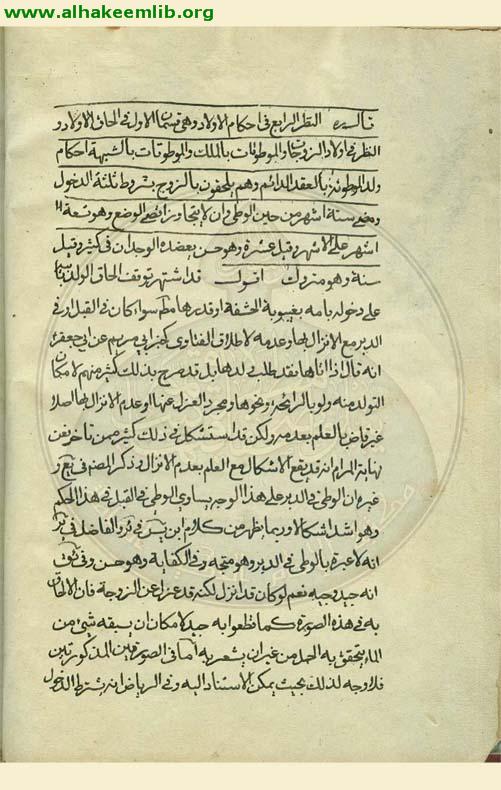 www.alhakeemlib.org
النظر الرابع في احكام الاولاد وهي قسمان الاول في الحاق الاولاد و
النظر في اولاد الزوجات والموطوئات بالملك والموطوئات بالشبهة احكام
ولد الموطوئة بالعقد الدائم وهم يلحقون بالزوج بشروط ثلثة الدخول
ومضي ستة اشهر من حين الوطي وان لا يتجاوز اقصى الوضع وهو تسعة
اشهر على الاشهر وقيل عشرة وهو حسن يعضده الوجدان في كثير وقيل
سنة وهو متروك اقول قد اشتهر توقف الحاق الولد
على دخوله بامه بغيبوبة الحشفة او قدرها مط سواء كان في القبل او في
الدبر مع الانزال بها وعدمه لاطلاق الفتاوى كخبر ابي مريم عن ابي جعفر
انه قال اذا اتاها فقد طلب ولدها بل قد صرح بذلك كثير منهم لامكان
التولد منه ولو بالرائحة ونحوها ومجرد العزل عنها او عدم الانزال بها اصلا
غير قاض بالعلم بعدمه ولكن قد استشكل في ذلك كثير ممن تاخر ففي
نهاية المرام انه قد يقع الاشكال مع العلم بعدم الانزال وذكر المصنف في
غيره ان الوطي في الدبر على هذا الوجه يساوي الوطي في القبل في هذا الحكم
وهو اشد اشكالا وربما يظهر من كلام ابن في والفاضل في
انه لا عبرة بالوطي في الدبر وهو متجه وفي الكفاية وهو حسن وفي
انه جيد وجيه نعم لو كان قد انزل لكنه قد عزل عن الزوجة فان الالحاق
به في هذه الصورة كما قطعوا به جيد لامكان ان يسبقه شيء من
الماء يتحقق به الحمل من غير ان يشعر به اما في الصورتين المذكورتين
فلا وجه لذلك بحيث يمكن الاستناد اليه وفي الرياض انه يشترط الدخول